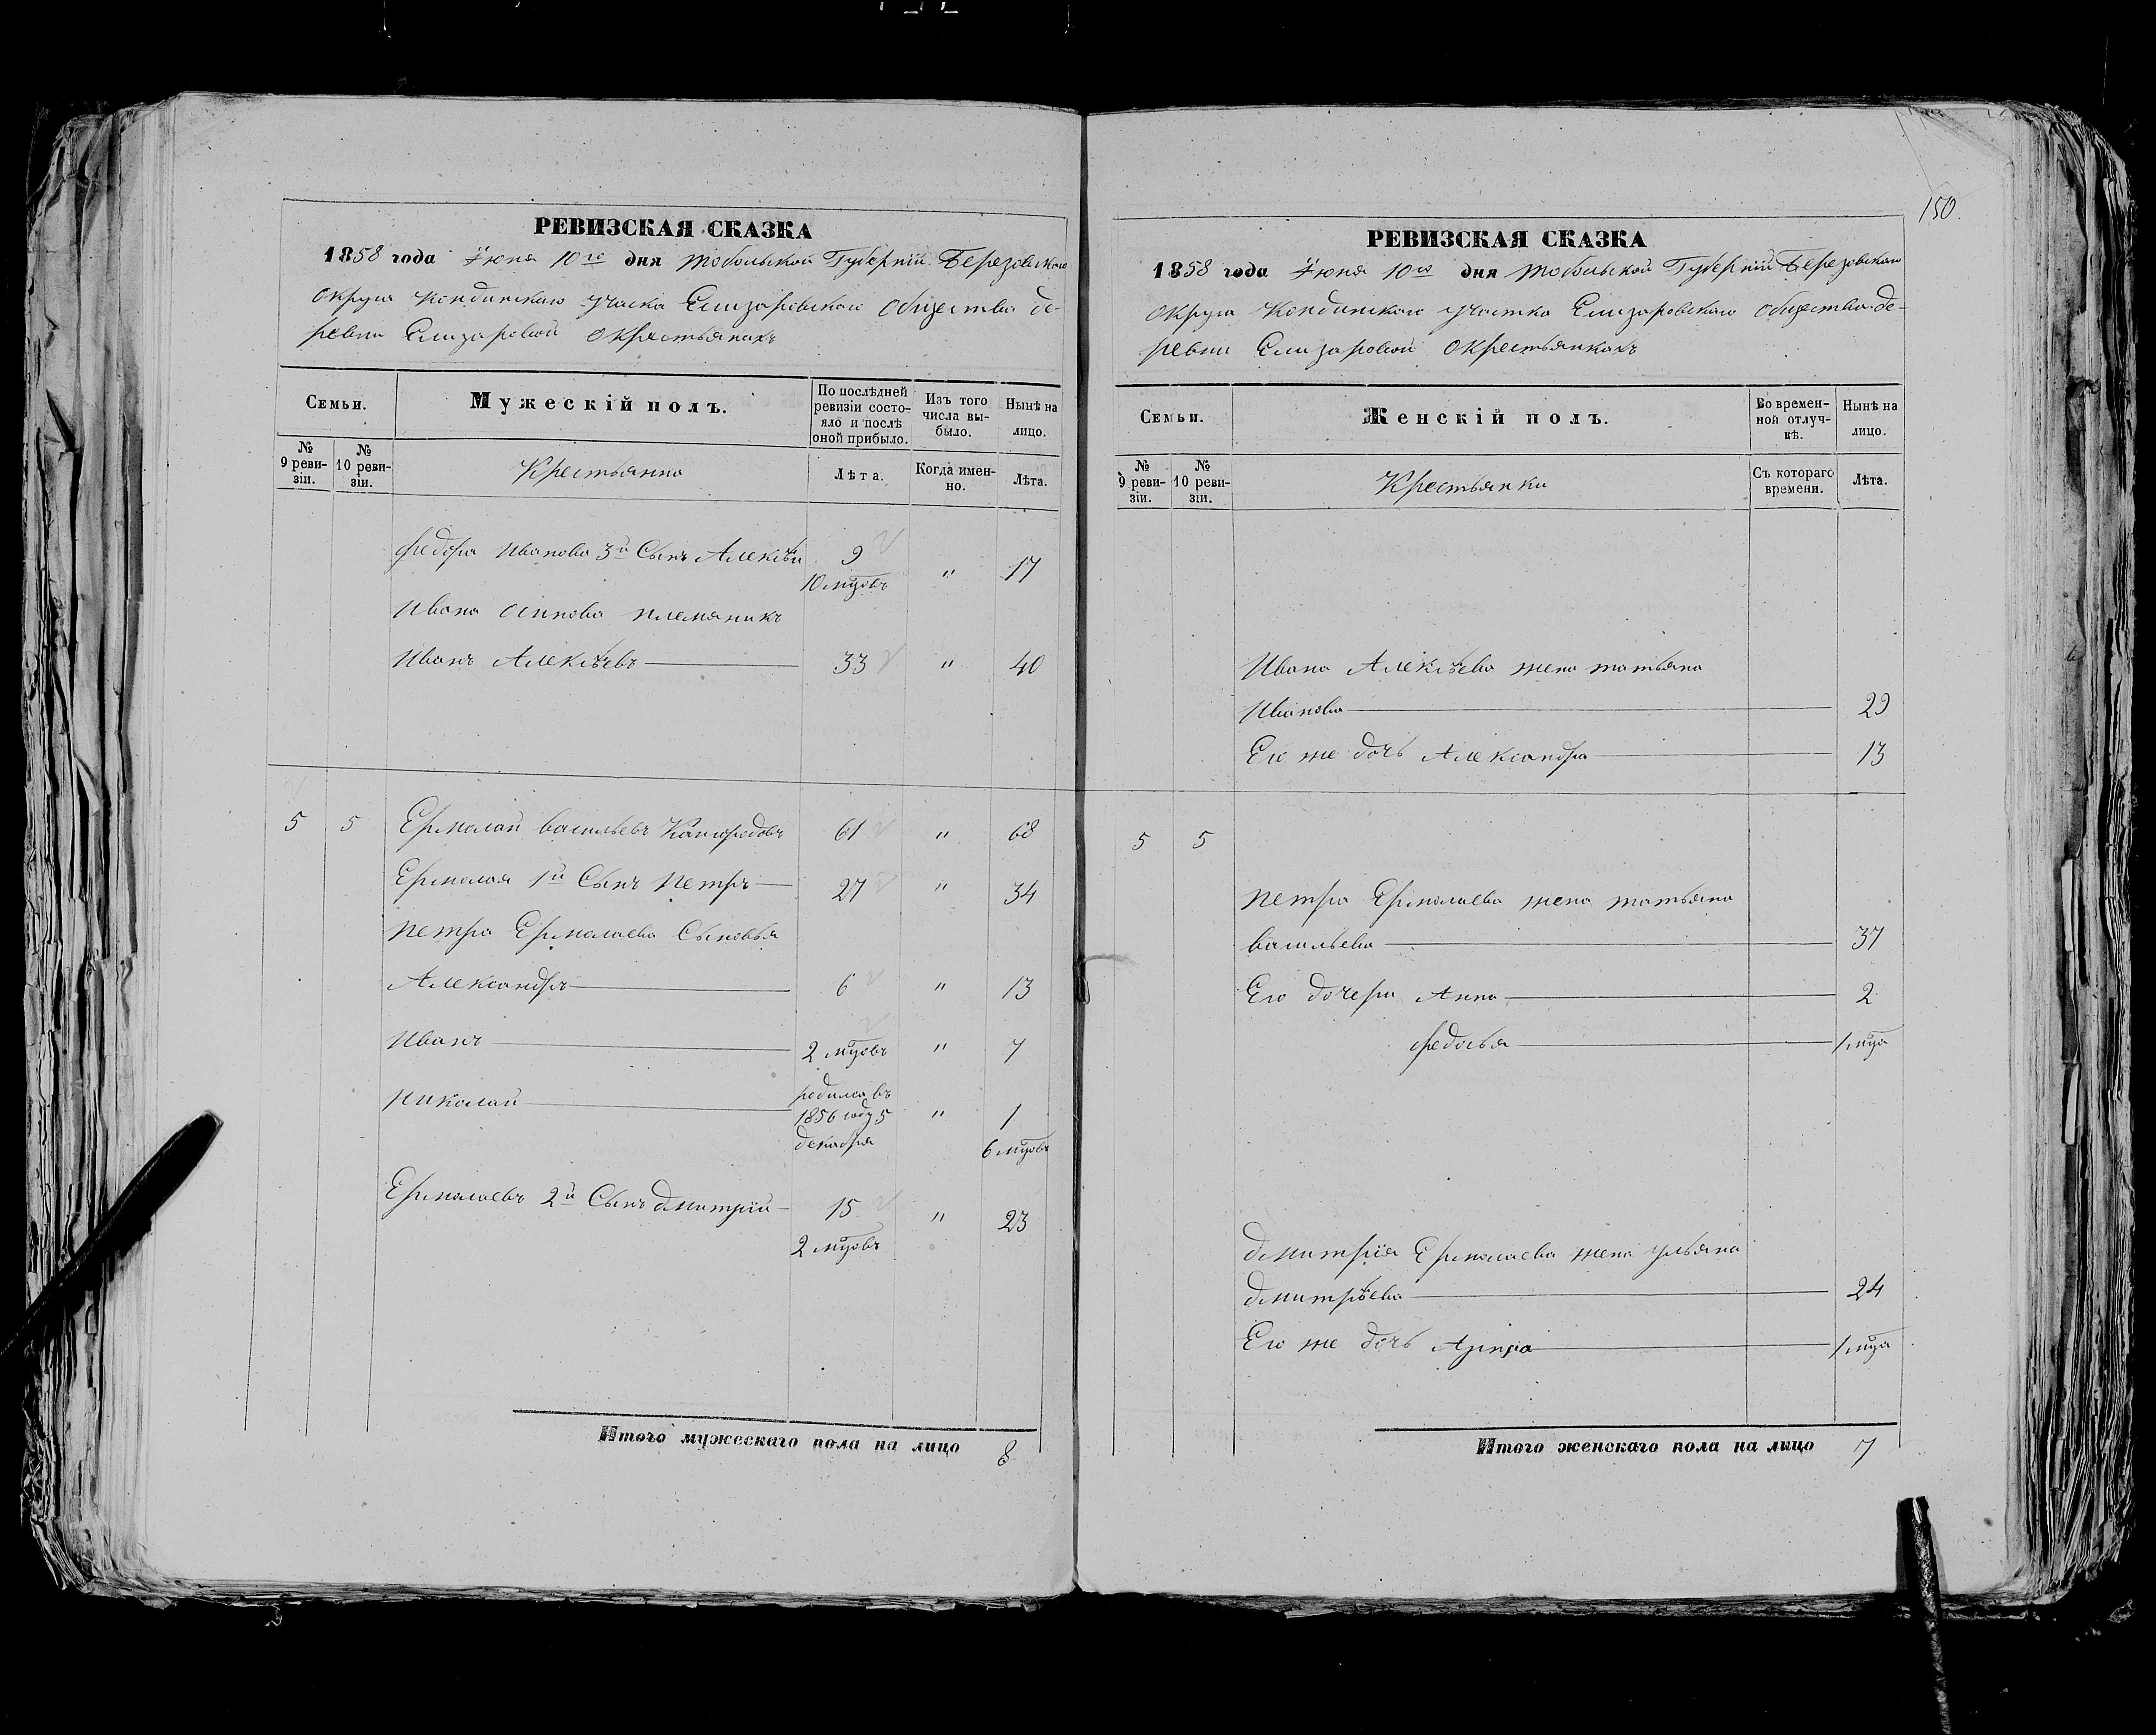 150.
РЕВИЗСКАЯ СКАЗКА
1858 года Іюня 10го дня Тобольской Губерніи Березовскаго
округа Кондинскаго участка Елизаровскаго общества де-
ревни Елизаровой о крестьянахъ
Семьи.
Мужескій полъ.
По послѣдней ревизіи состо-
яло и послѣ оной прибыло.
Изъ того числа вы-
было.
Нынѣ на лицо.
№ 9 реви-
зіи.
№ 10 реви-
зіи.
Крестьянина
Лѣта.
Когда имен-
но.
Лѣта.
Федора Иванова 3й Сынъ Алексѣй 9 10 мцовъ " 17
Ивана Осипова племяникъ
Иванъ Алексѣевъ 33 " 40
5 5 Ермолай Васильевъ 61 " 68
Ермолая 1й Сынъ Петръ 27 " 34
Петра Ермолаева Сыновья
Александръ 6 " 13
Иванъ 2 мцовъ " 7
Николай родился въ 1856 году 5 декабря " 1 6 мцовъ
Ермолаевъ 2й Сынъ Дмитрій 15 2 мцовъ " 23
Итого мужескаго пола на лицо 8
РЕВИЗСКАЯ СКАЗКА
1858 года Іюня 10го дня Тобольской Губерніи Березовскаго
округа Кондинскаго участка Елизаровскаго общества де-
ревни Елизаровой о крестьянкахъ
Семьи.
Женскій полъ.
Во времен-
ной отлуч-
кѣ.
Нынѣ на лицо.
№ 9 реви-
зіи.
№ 10 реви-
зіи.
Крестьянки
Съ котораго времени.
Лѣта.
Ивана Алексѣева жена Татьяна
Иванова 29
Его же дочь Александра 13
5 5
Петра Ермолаева жена Татьяна
Васильева 37
Его дочери Анна 2
Федосья 1 мца
Дмитрія Ермолаева жена Ульяна
Дмитрѣева 24
Его же дочь 1 мца
Итого женскаго пола на лицо 7